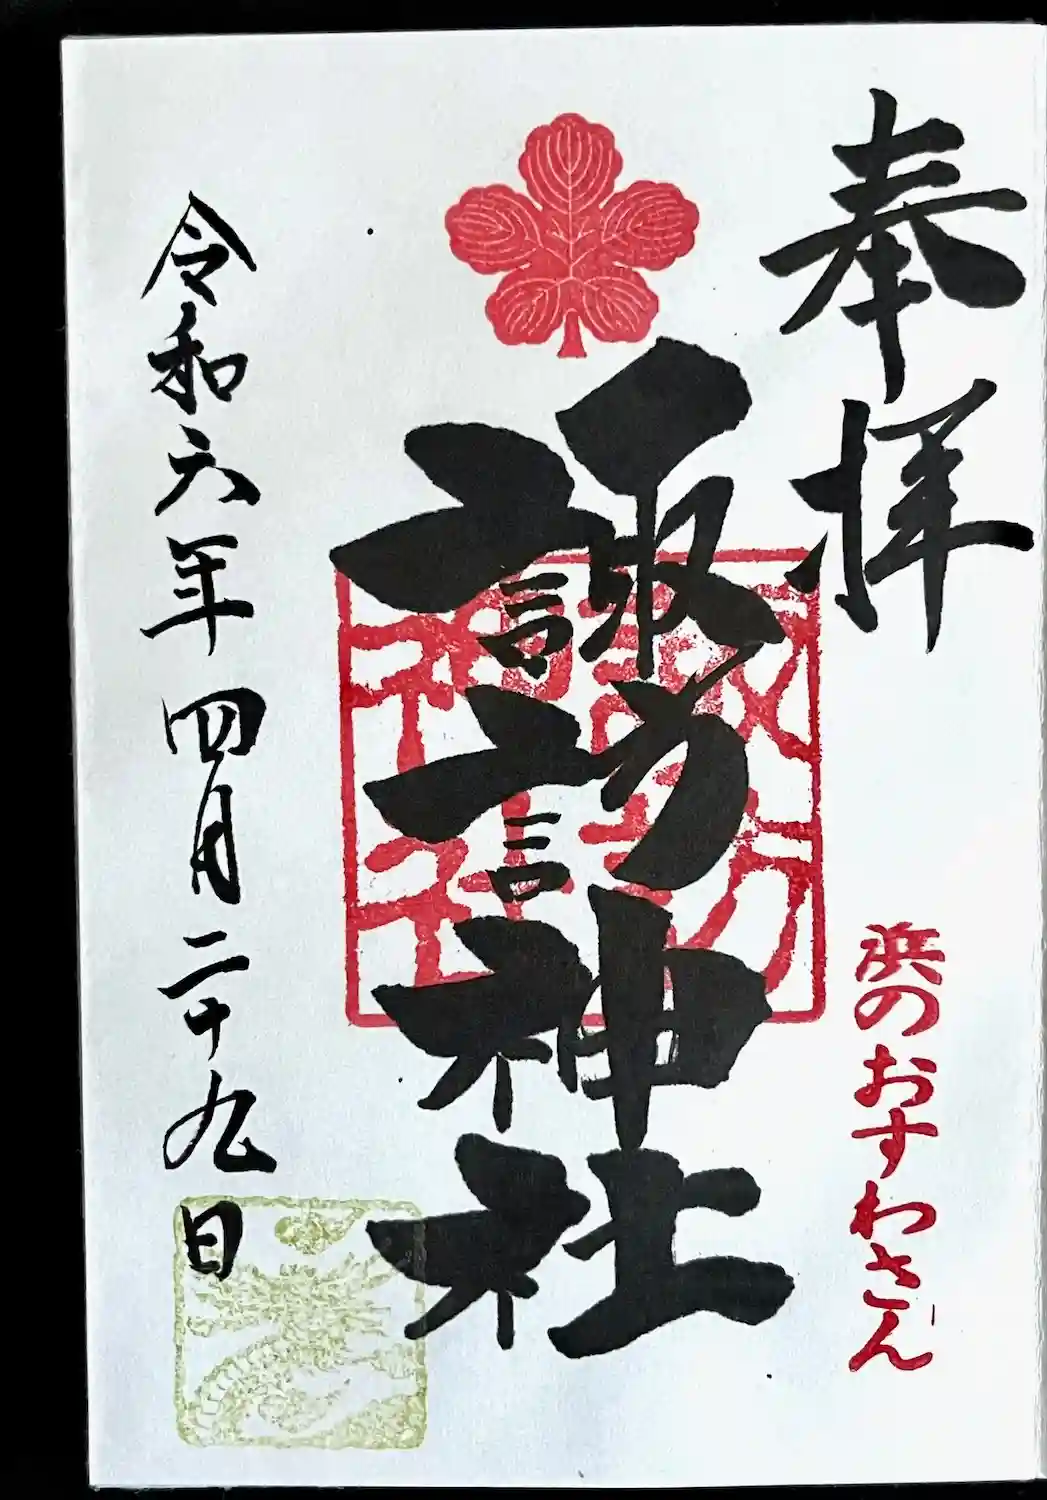 奉拝
浜のおすわさん
諏訪神社
諏訪
神社
令和六年四月二十九日